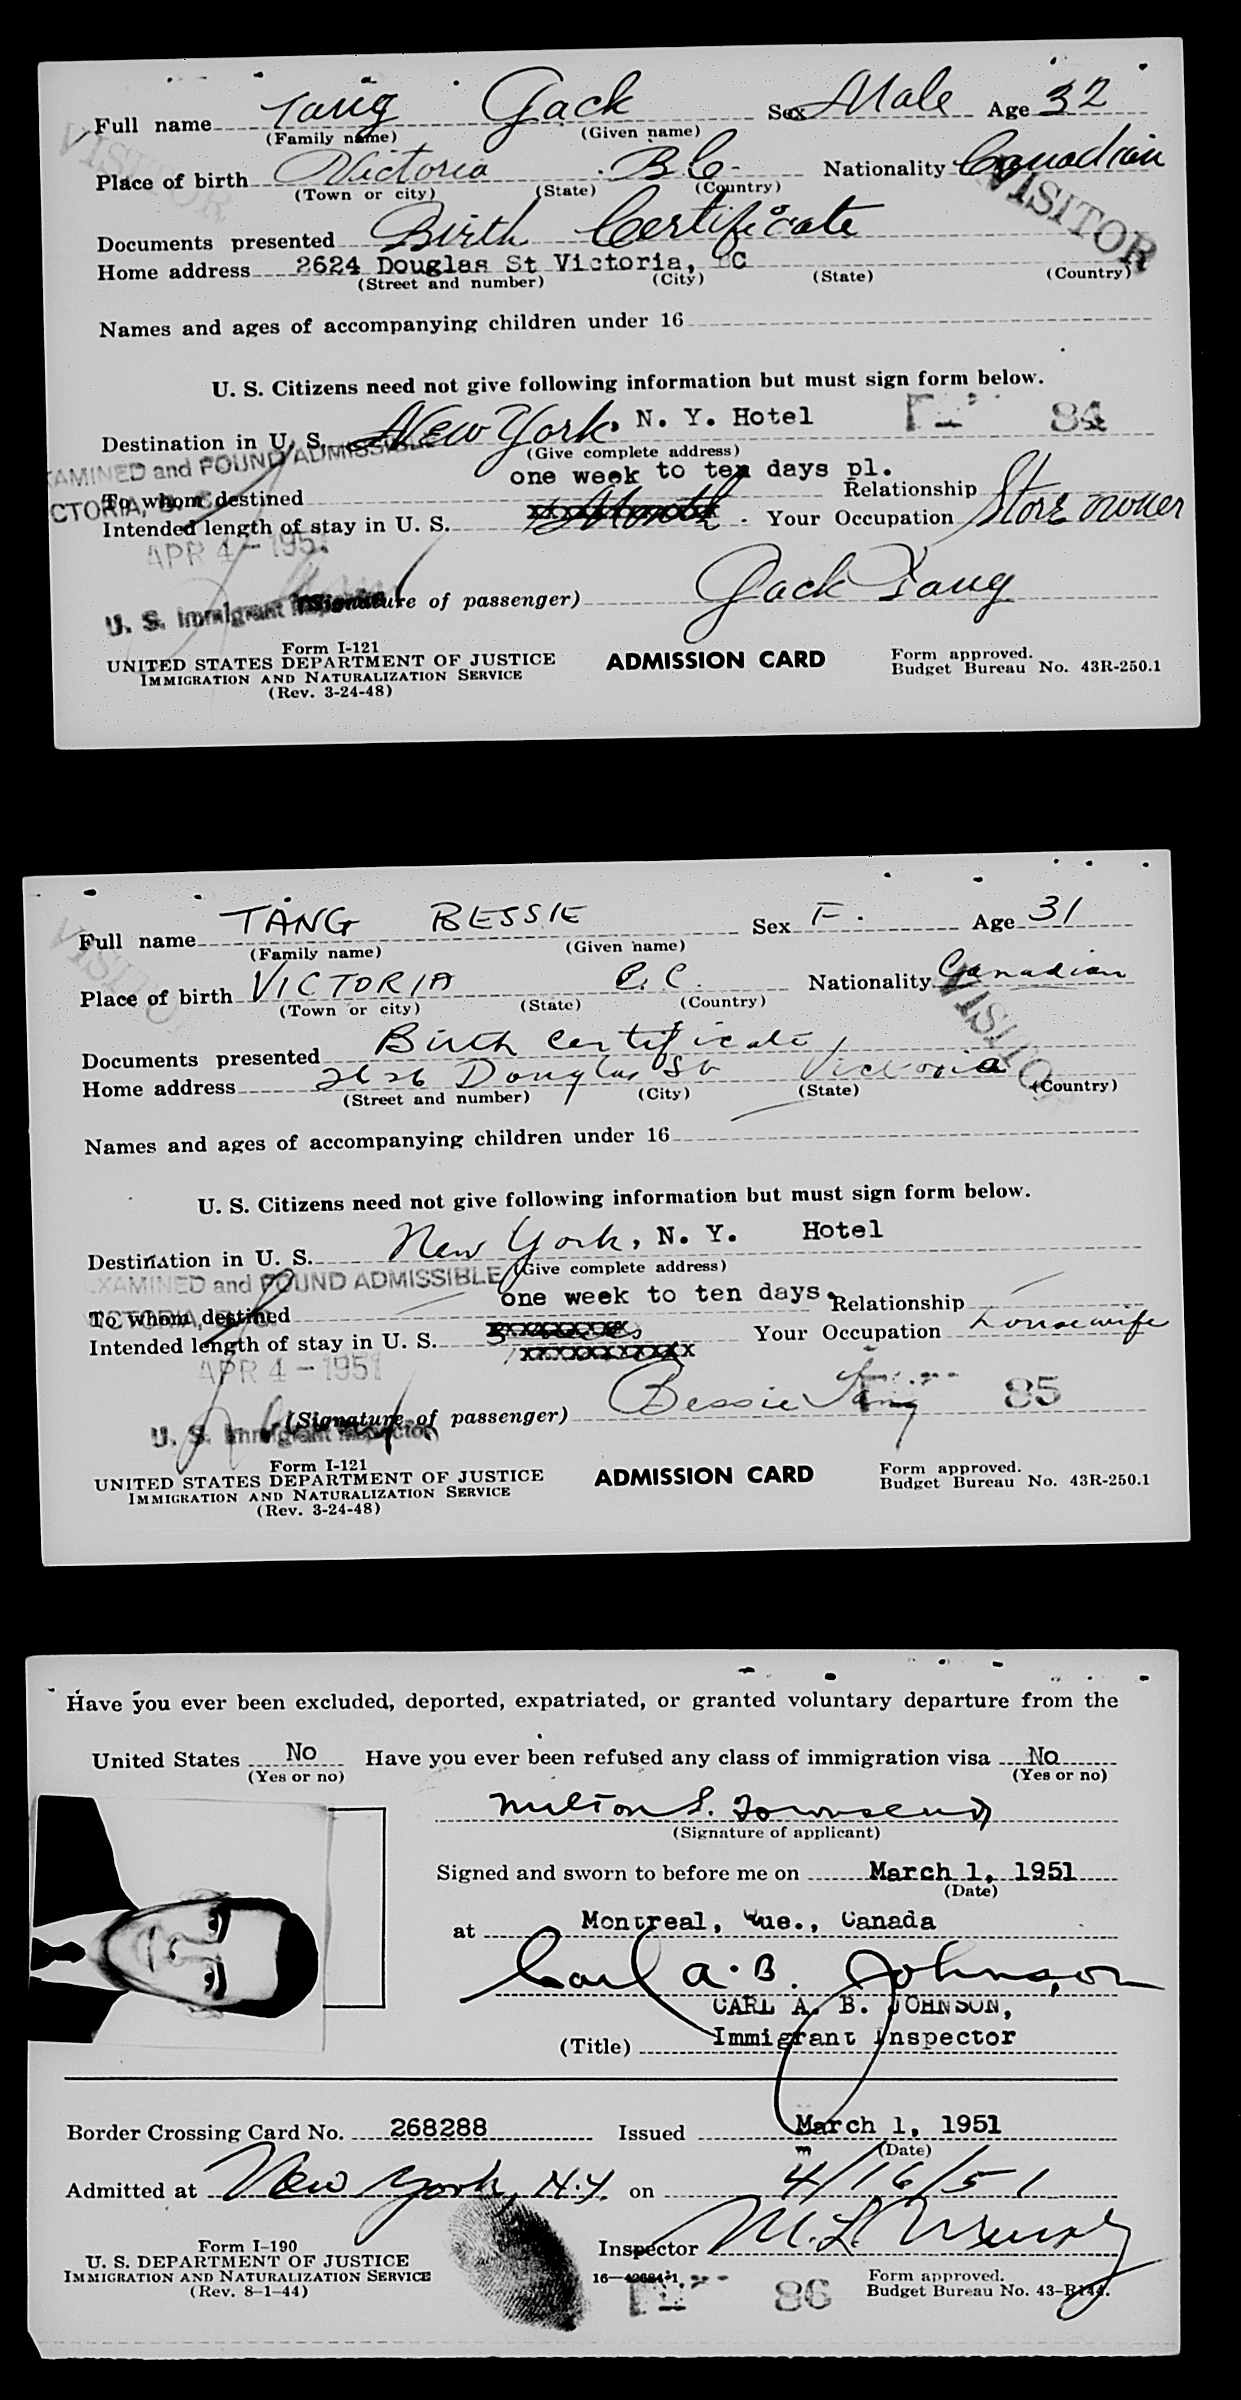 Full name Tang Jack Sex Male Age 32
(Family name) (Given name)
VISITOR
Place of birth Victoria B.C. Nationality Canadian
(Town or city) (State) (Country)
VISITOR
Documents presented Birth Certificate
Home address 2624 Douglas St Victoria, BC
(Street and number) (City) (State) (Country)
Names and ages of accompanying children under 16
U. S. Citizens need not give following information but must sign form below.
Destination in U. S. New York. N. Y. Hotel 84
(Give complete address)
EXAMINED and FOUND ADMISSIBLE
one week to ten days pl.
To whom destined Relationship
VICTORIA, B. C.
Intended length of stay in U. S. Month Your Occupation Store owner
APR 4 - 1951
(Signature of passenger) Jack Tang
U. S. Immigrant Inspector
Form I-121
UNITED STATES DEPARTMENT OF JUSTICE ADMISSION CARD Form approved.
IMMIGRATION AND NATURALIZATION SERVICE Budget Bureau No. 43R-250.1
(Rev. 3-24-48)
Full name TANG BESSIE Sex F. Age 31
(Family name) (Given name)
VISITOR
Place of birth VICTORIA B.C. Nationality Canadian
(Town or city) (State) (Country)
VISITOR
Documents presented Birth certificate
Home address 2626 Douglas St Victoria
(Street and number) (City) (State) (Country)
Names and ages of accompanying children under 16
U. S. Citizens need not give following information but must sign form below.
Destination in U. S. New York, N. Y. Hotel
(Give complete address)
EXAMINED and FOUND ADMISSIBLE
one week to ten days.
To whom destined Relationship
VICTORIA, B. C.
Intended length of stay in U. S. Your Occupation housewife
APR 4 - 1951
(Signature of passenger) Bessie Tang 85
U. S. Immigrant Inspector
Form I-121
UNITED STATES DEPARTMENT OF JUSTICE ADMISSION CARD Form approved.
IMMIGRATION AND NATURALIZATION SERVICE Budget Bureau No. 43R-250.1
(Rev. 3-24-48)
Have you ever been excluded, deported, expatriated, or granted voluntary departure from the
United States No Have you ever been refused any class of immigration visa No
(Yes or no) (Yes or no)
Milton S. Townsend
(Signature of applicant)
Signed and sworn to before me on March 1, 1951
(Date)
at Montreal, Que., Canada
Carl A. B. Johnson
CARL A. B. JOHNSON,
(Title) Immigrant Inspector
Border Crossing Card No. 268288 Issued March 1, 1951
(Date)
Admitted at New York, N.Y. on 4/16/51
Inspector M.L.
Form I-190
U. S. DEPARTMENT OF JUSTICE
IMMIGRATION AND NATURALIZATION SERVICE 86 Form approved.
(Rev. 8-1-44) Budget Bureau No. 43-R144.